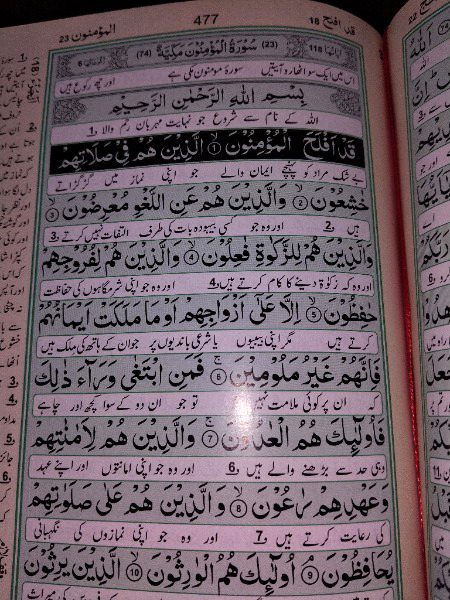 قد افلح 18
477
المؤمنون 23
اٰیاتہا 118
(23) سُوْرَةُ الْمُؤْمِنُوْنَ مَكِّيَّةٌ (74)
اس میں ایک سو اٹھارہ آیتیں سورۂ مومنون مکی ہے اور چھ رکوع ہیں
بِسْمِ اللّٰهِ الرَّحْمٰنِ الرَّحِيْمِ
اللہ کے نام سے شروع جو نہایت مہربان رحم والا 1
قَدْ اَفْلَحَ الْمُؤْمِنُوْنَ ① الَّذِيْنَ هُمْ فِيْ صَلَاتِهِمْ
بے شک مراد کو پہنچے ایمان والے جو اپنی نماز میں گڑگڑاتے
خٰشِعُوْنَ ② وَالَّذِيْنَ هُمْ عَنِ اللَّغْوِ مُعْرِضُوْنَ ③
ہیں 2 اور وہ جو کسی بیہودہ بات کی طرف التفات نہیں کرتے 3
وَالَّذِيْنَ هُمْ لِلزَّكٰوةِ فٰعِلُوْنَ ④ وَالَّذِيْنَ هُمْ لِفُرُوْجِهِمْ
اور وہ کہ زکوٰۃ دینے کا کام کرتے ہیں 4 اور وہ جو اپنی شرمگاہوں کی حفاظت
حٰفِظُوْنَ ⑤ اِلَّا عَلٰٓى اَزْوَاجِهِمْ اَوْ مَا مَلَكَتْ اَيْمَانُهُمْ
کرتے ہیں مگر اپنی بیبیوں یا شرعی باندیوں پر جو ان کے ہاتھ کی ملک ہیں
فَاِنَّهُمْ غَيْرُ مَلُوْمِيْنَ ⑥ فَمَنِ ابْتَغٰى وَرَآءَ ذٰلِكَ
کہ ان پر کوئی ملامت نہیں تو جو ان دو کے سوا کچھ اور چاہے
فَاُولٰٓئِكَ هُمُ الْعٰدُوْنَ ⑦ وَالَّذِيْنَ هُمْ لِاَمٰنٰتِهِمْ
وہی حد سے بڑھنے والے ہیں 6 اور وہ جو اپنی امانتوں اور اپنے عہد
وَعَهْدِهِمْ رٰعُوْنَ ⑧ وَالَّذِيْنَ هُمْ عَلٰى صَلَوٰتِهِمْ
کی رعایت کرتے ہیں 7 اور وہ جو اپنی نمازوں کی نگہبانی
يُحَافِظُوْنَ ⑨ اُولٰٓئِكَ هُمُ الْوٰرِثُوْنَ ⑩ الَّذِيْنَ يَرِثُوْنَ